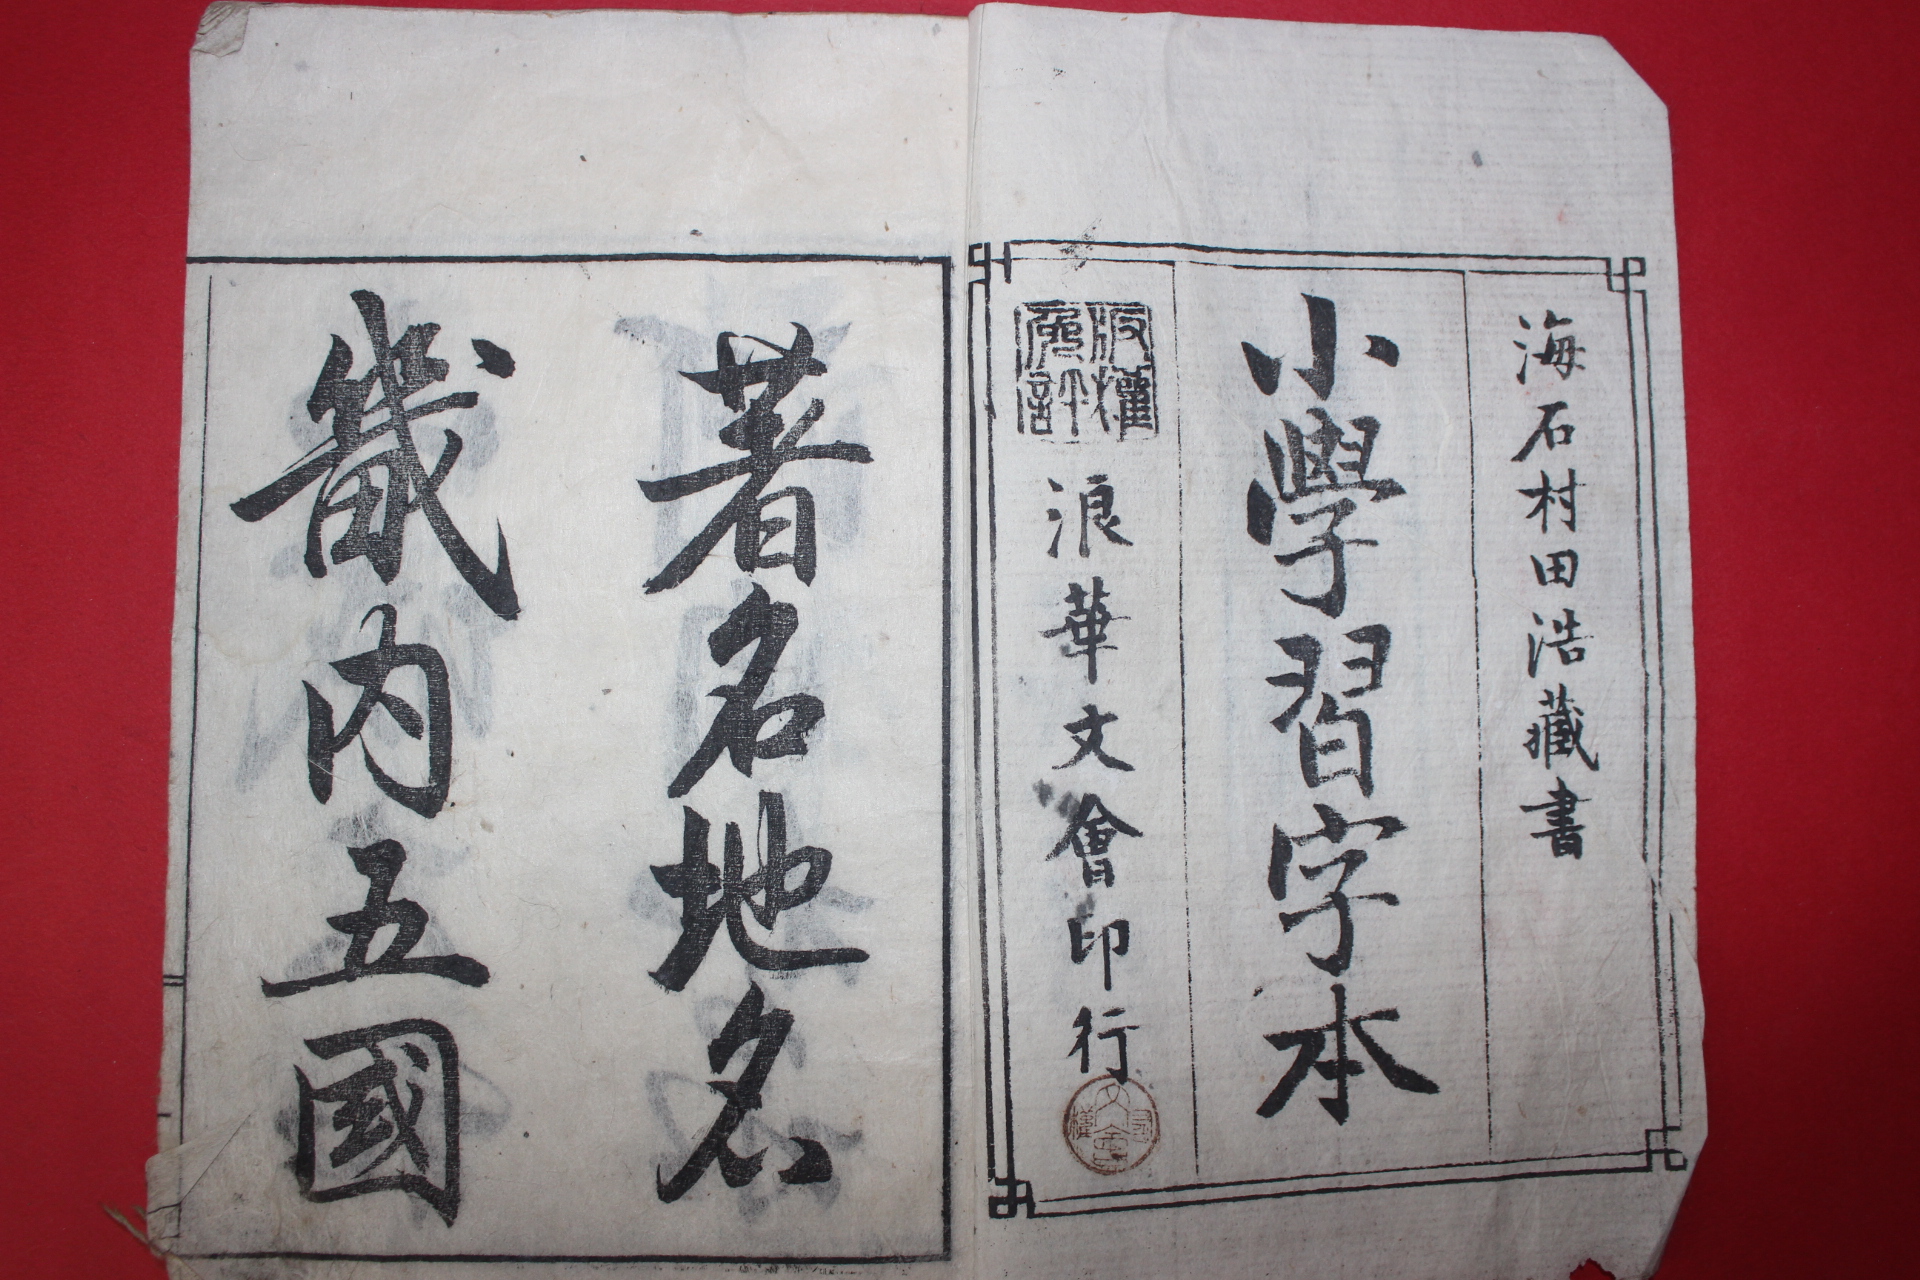 海石村田浩藏書
小學習字本
版權免許
浪華文會印行
著名地名
畿內五國